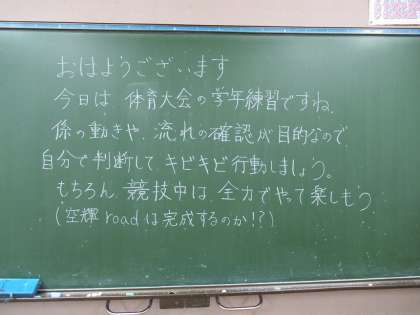 おはようございます
今日は 体育大会の学年練習ですね.
係の動きや、流れの確認が目的なので、
自分で判断して キビキビ行動しましょう。
もちろん、競技中は、全力でやって楽しもう
(空輝roadは完成するのか!?)